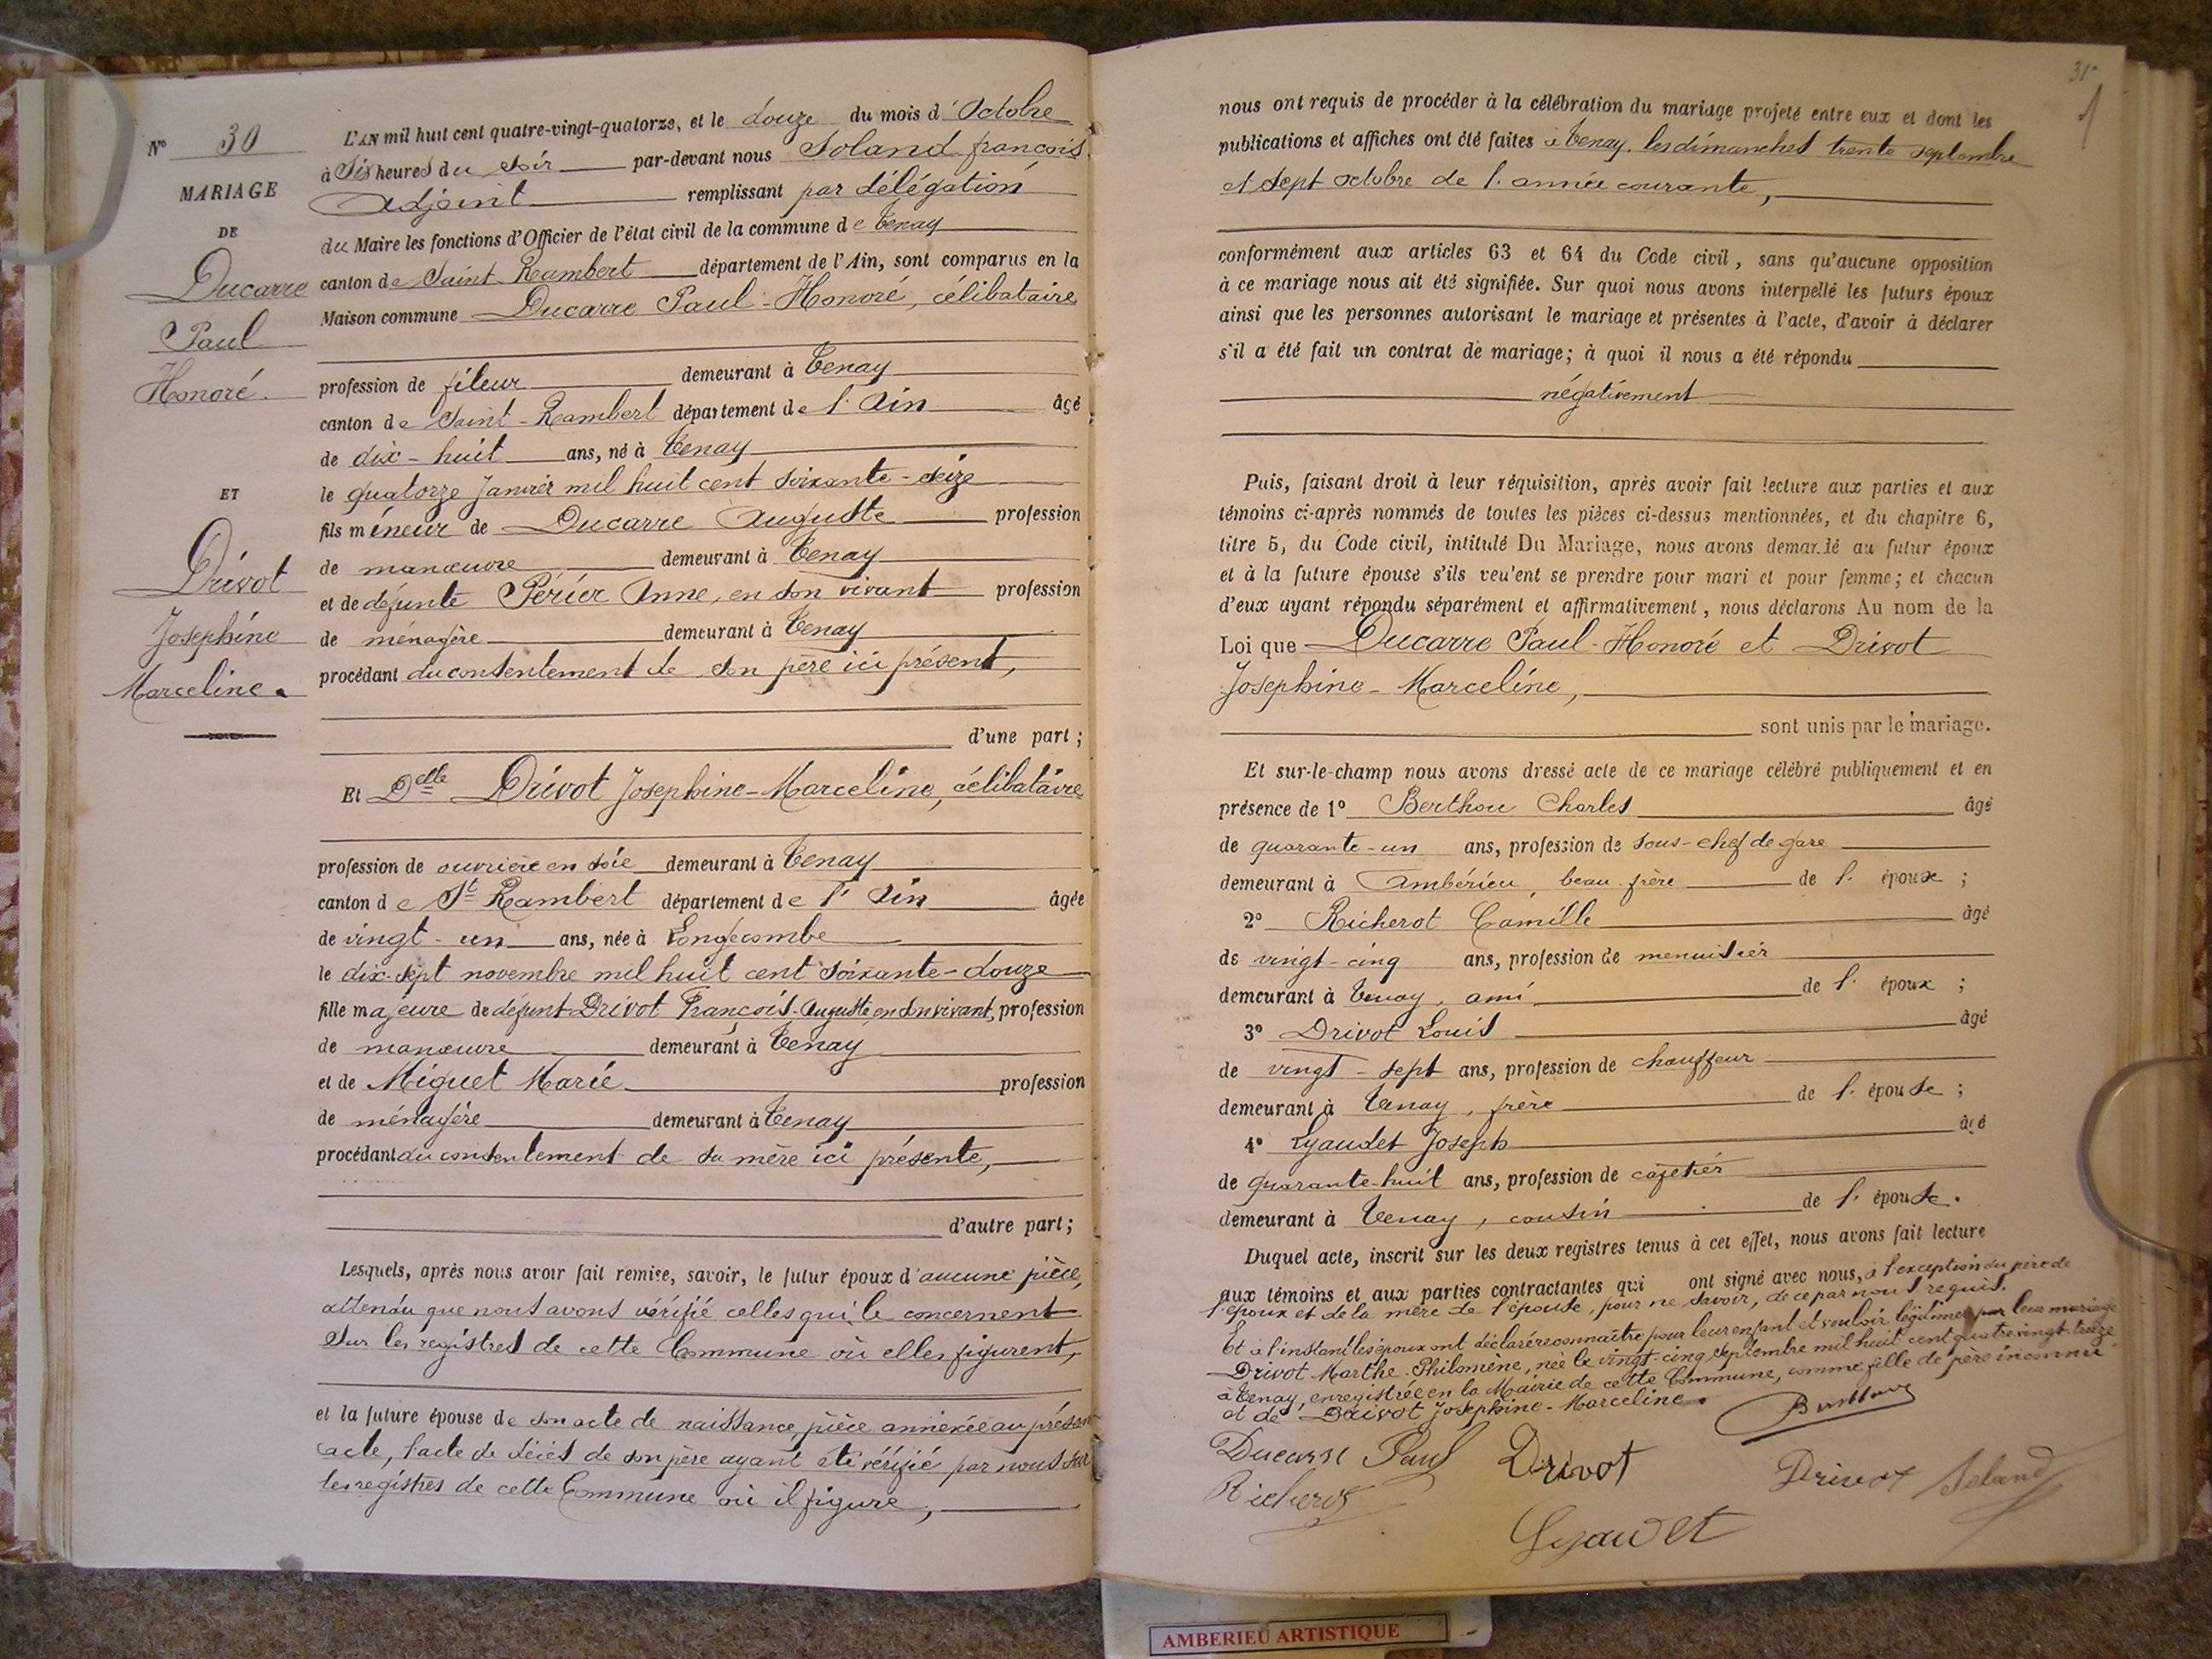 N° 30
MARIAGE
DE
Ducarre
Paul
Honoré.
ET
Drivot
Josephine
Marceline.
L'AN mil huit cent quatre-vingt-quatorze, et le douze du mois d'Octobre
à Six heures du soir par-devant nous Soland françois
Adjoint remplissant par délégation
du Maire les fonctions d'Officier de l'état civil de la commune de Tenay
canton de Saint-Rambert département de l'Ain, sont comparus en la
Maison commune Ducarre Paul-Honoré, célibataire
profession de fileur demeurant à Tenay
canton de Saint-Rambert département de l'Ain âgé
de dix-huit ans, né à Tenay
le quatorze Janvier mil huit cent soixante-seize
fils mineur de Ducarre Auguste profession
de manœuvre demeurant à Tenay
et de défunte Périer Anne, en son vivant profession
de ménagère demeurant à Tenay
procédant du consentement de son père ici présent,
d'une part ;
Et Delle Drivot Josephine-Marceline, célibataire
profession de ouvrière en soie demeurant à Tenay
canton de St Rambert département de l'Ain âgée
de vingt-un ans, née à Longecombe
le dix-sept novembre mil huit cent soixante-douze
fille majeure de défunt Drivot François-Auguste, en son vivant, profession
de manœuvre demeurant à Tenay
et de Miguet Marie profession
de ménagère demeurant à Tenay
procédant du consentement de sa mère ici présente,
d'autre part ;
Lesquels, après nous avoir fait remise, savoir, le futur époux d'aucune pièce,
attendu que nous avons vérifié celles qui le concernent
sur les registres de cette Commune où elles figurent,
et la future épouse de son acte de naissance, pièce annexée au présent
acte, l'acte de décès de son père ayant été vérifié par nous sur
les registres de cette Commune où il figure,
31
nous ont requis de procéder à la célébration du mariage projeté entre eux et dont les
publications et affiches ont été faites à Tenay, les dimanches trente septembre
et sept octobre de l'année courante,
conformément aux articles 63 et 64 du Code civil, sans qu'aucune opposition
à ce mariage nous ait été signifiée. Sur quoi nous avons interpellé les futurs époux
ainsi que les personnes autorisant le mariage et présentes à l'acte, d'avoir à déclarer
s'il a été fait un contrat de mariage; à quoi il nous a été répondu
négativement
Puis, faisant droit à leur réquisition, après avoir fait lecture aux parties et aux
témoins ci-après nommés de toutes les pièces ci-dessus mentionnées, et du chapitre 6,
titre 5, du Code civil, intitulé Du Mariage, nous avons demandé au futur époux
et à la future épouse s'ils veulent se prendre pour mari et pour femme; et chacun
d'eux ayant répondu séparément et affirmativement, nous déclarons Au nom de la
Loi que Ducarre Paul-Honoré et Drivot
Josephine-Marceline,
sont unis par le mariage.
Et sur-le-champ nous avons dressé acte de ce mariage célébré publiquement et en
présence de 1° Berthou Charles âgé
de quarante-un ans, profession de sous-chef de gare
demeurant à Ambérieu, beau-frère de l'époux ;
2° Richerot Camille âgé
de vingt-cinq ans, profession de menuisier
demeurant à Tenay, ami de l'époux ;
3° Drivot Louis âgé
de vingt-sept ans, profession de chauffeur
demeurant à Tenay, frère de l'épouse ;
4° Lyaudet Joseph âgé
de quarante-huit ans, profession de cafetier
demeurant à Tenay, cousin de l'épouse.
Duquel acte, inscrit sur les deux registres tenus à cet effet, nous avons fait lecture
aux témoins et aux parties contractantes qui ont signé avec nous, à l'exception du père de
l'époux et de la mère de l'épouse, pour ne savoir, de ce par nous requis.
Et à l'instant les époux ont déclaré reconnaître pour leur enfant et vouloir légitimer par leur mariage
Drivot Marthe-Philomène, née le vingt-cinq septembre mil huit cent quatre vingt treize
à Tenay, enregistrée en la Mairie de cette Commune, comme fille de père inconnu
et de Drivot Josephine-Marceline.
Ducarre Paul Drivot Drivot Soland
Richerot
Lyaudet
AMBERIEU ARTISTIQUE